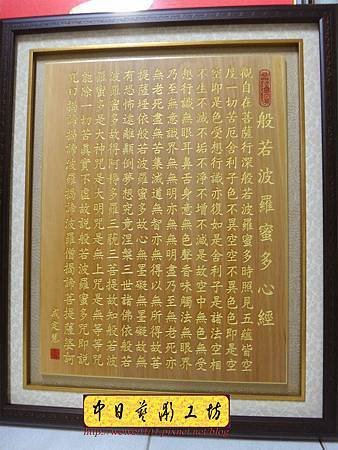 般若波羅蜜多心經
觀自在菩薩行深般若波羅蜜多時照見五蘊皆空
度一切苦厄舍利子色不異空空不異色色即是空
空即是色受想行識亦復如是舍利子是諸法空相
不生不滅不垢不淨不增不減是故空中無色無受
想行識無眼耳鼻舌身意無色聲香味觸法無眼界
乃至無意識界無無明亦無無明盡乃至無老死亦
無老死盡無苦集滅道無智亦無得以無所得故菩
提薩埵依般若波羅蜜多故心無罣礙無罣礙故無
有恐怖遠離顛倒夢想究竟涅槃三世諸佛依般若
波羅蜜多故得阿耨多羅三藐三菩提故知般若波
羅蜜多是大神咒是大明咒是無上咒是無等等咒
能除一切苦真實不虛故說般若波羅蜜多咒即說
咒曰揭諦揭諦波羅揭諦波羅僧揭諦菩提薩婆訶
中日藝彫工坊